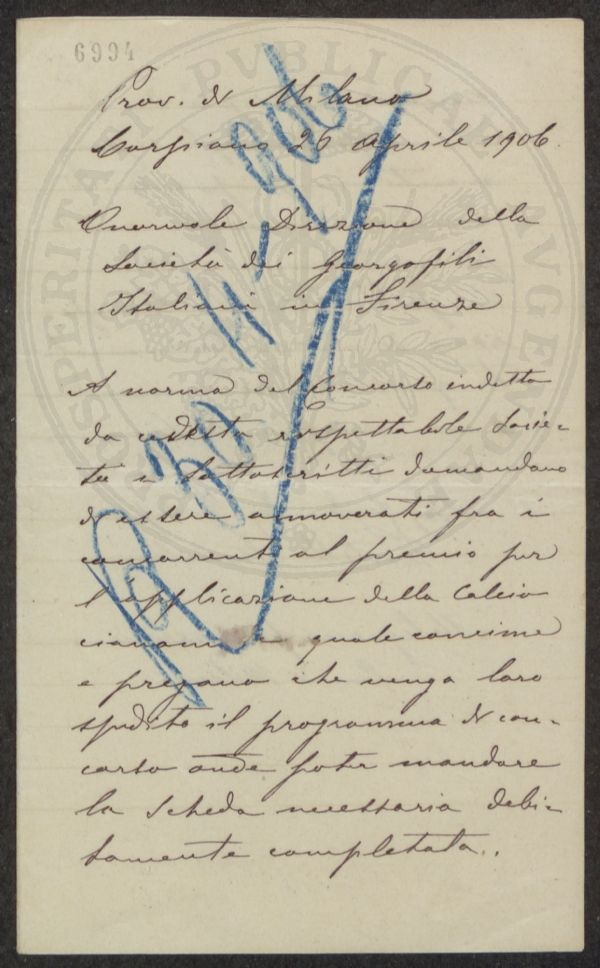 6994
Prov. di Milano
Carpiano 26 Aprile 1906.
Onorevole Direzione della
Società dei Georgofili
Italiani in Firenze
A norma del Concorso indetto
da codesta rispettabile Socie-
tà i sottoscritti domandano
di essere annoverati fra i
concorrenti al premio per
l'applicazione della Calcio
cianamide quale concime
e pregano che venga loro
spedito il programma di con-
corso onde poter mandare
la scheda necessaria debi-
tamente completata.
R 30-4-906
PROSPERITATI PVBLICAE AVGENDAE